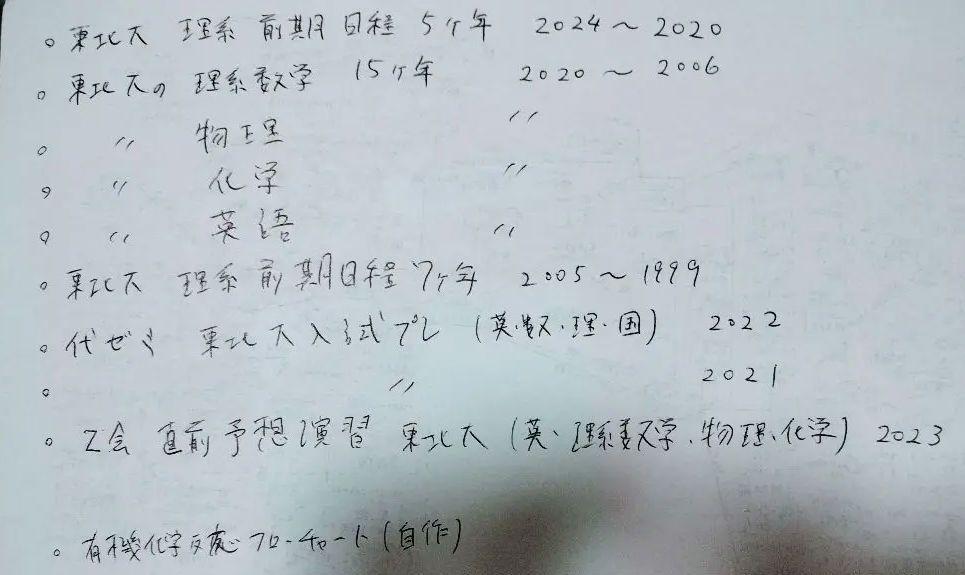 。東北大 理系 前期日程 5ヶ年 2024～2020
。東北大の 理系数学 15ヶ年 2020～2006
。〃 物理 〃
。〃 化学 〃
。〃 英語 〃
。東北大 理系 前期日程 7ヶ年 2005～1999
。代ゼミ 東北大入試プレ (英・数・理・国) 2022
。〃 2021
。Z会 直前予想演習 東北大 (英、理系数学、物理、化学) 2023
。有機化学反応フローチャート(自作)